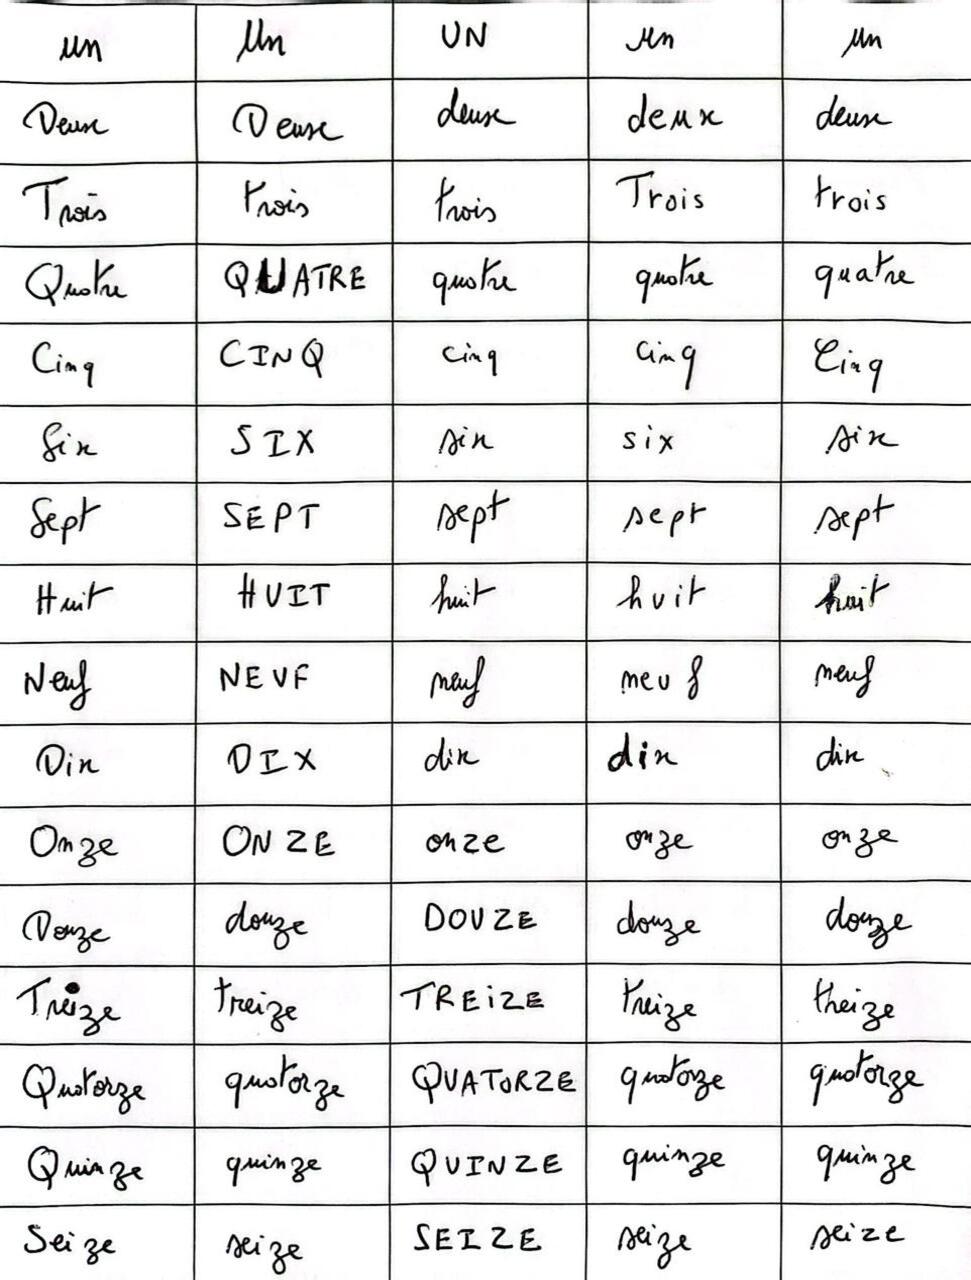 un Un UN un un
Deux Deux deux deux deux
Trois trois trois Trois trois
Quatre QUATRE quatre quatre quatre
Cinq CINQ cinq cinq Cinq
Six SIX six six six
Sept SEPT sept sept sept
Huit HUIT huit huit huit
Neuf NEUF neuf neuf neuf
Dix DIX dix dix dix
Onze ONZE onze onze onze
Douze douze DOUZE douze douze
Treize treize TREiZE treize treize
Quatorze quatorze QUATORZE quatorze quatorze
Quinze quinze QUINZE quinze quinze
Seize seize SEIZE seize seize